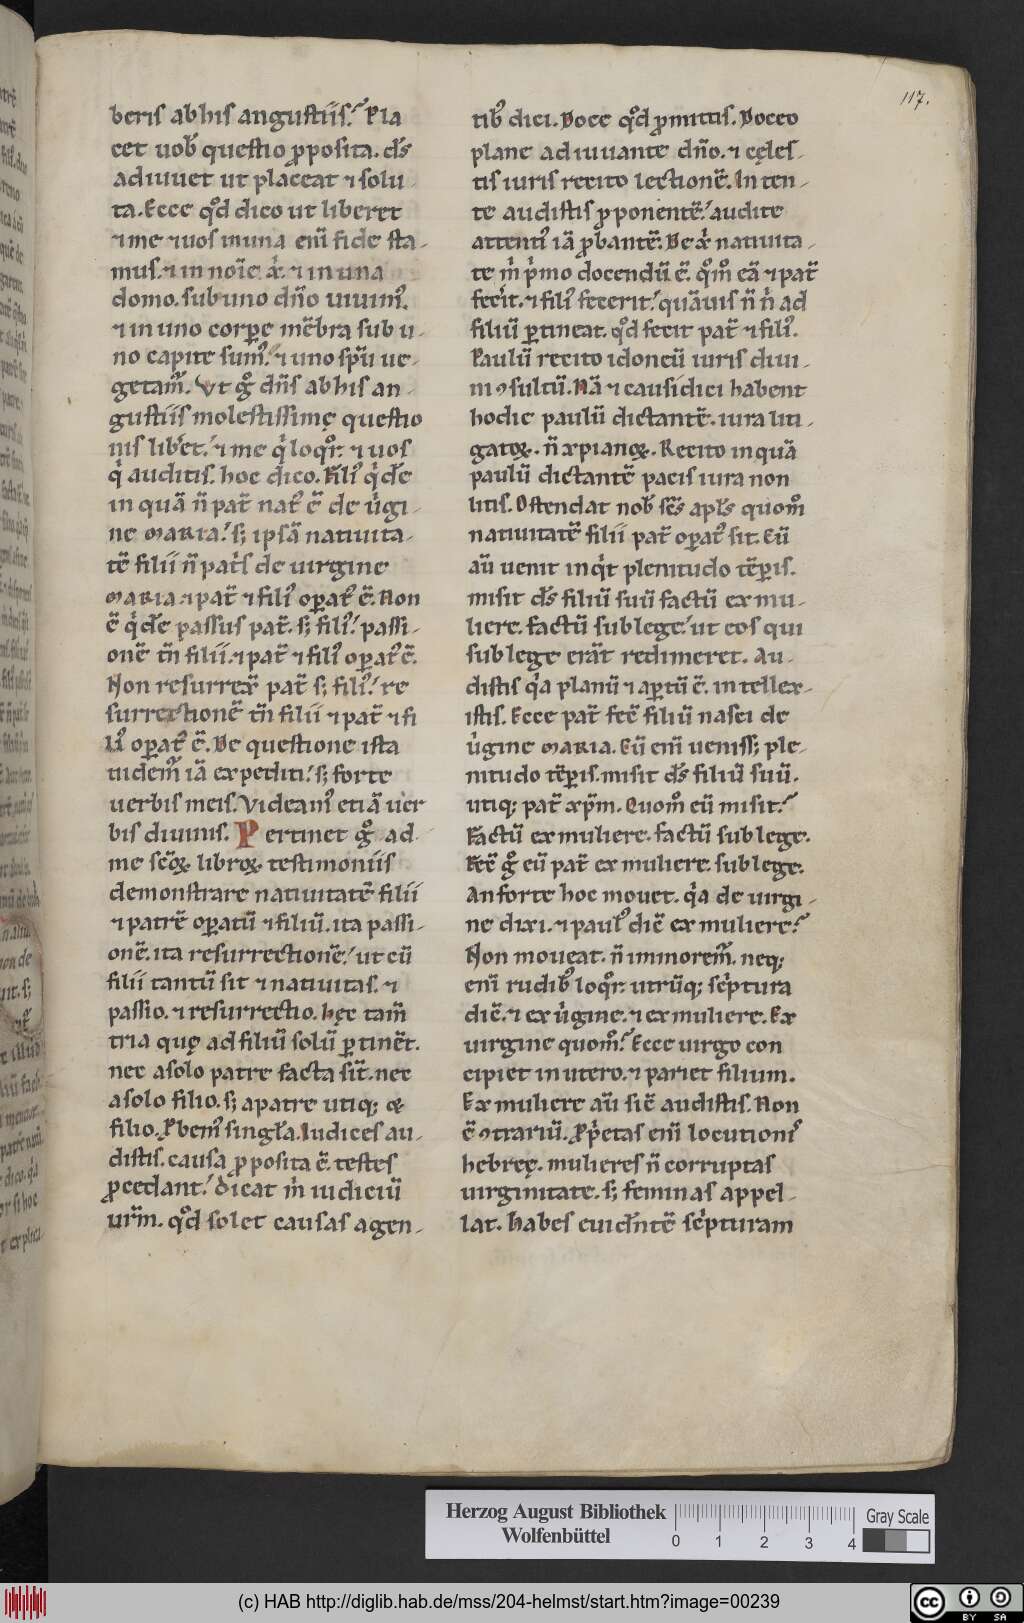 117.
beris ab his angustiis? Pla
cet uob̄ questio ꝓposita. ds̄
adiuuet ut placeat ⁊ solu-
ta. Ecce qd̄ dico ut liberet
⁊ me ⁊ uos in una eni̅ fide sta-
mus. ⁊ in noi̅e xp̅i. ⁊ in una
domo. sub uno dn̄o uiuimꝰ.
⁊ in uno corpꝑę me̅bra sub u-
no capite sumꝰ. ⁊ uno sp̅u ue-
getam̅. Vt g̊ dn̄s ab his an-
gustiis molestissimę questio
nis lib̅et. ⁊ me q̇ loqr̅. ⁊ uos
q̇ auditis. hoc dico. Filiꝰ q̇de̅
in qua̅ n̄ pat̅ natꝰ e̅ de u̇gi-
ne MARIA. s; ipsa̅ natiuita-
te̅ filii n̄ patis̅ de uirgine
MARIA. ⁊ pat̅ ⁊ filiꝰ oꝑatꝰ e̅. Non
e̅ q̇de̅ passus pat̅. s; filiꝰ. passi-
one̅ tn̄ filii. ⁊ pat̅ ⁊ filiꝰ oꝑatꝰ e̅.
Non resurrex̅ pat̅ s; filiꝰ. re
surrectione̅ tn̄ filii ⁊ pat̅ ⁊ fi
liꝰ oꝑatꝰ e̅. De questione ista
uidem̅ ia̅ expediti. s; forte
uerbis meis. Videamꝰ etia̅ uer
bis diuinis. Pertinet g̊ ad-
me sc̄oꝝ libroꝝ testimoniis
demonstrare natiuitate̅ filii
⁊ patre̅ oꝑatu̅ ⁊ filiu̅. ita passi-
one̅. ita resurrectione̅. ut cu̅
filii tantu̅ sit ⁊ natiuitas. ⁊
passio. ⁊ resurrectio. hęc tam̅
tria quę ad filiu̅ solu̅ ꝑtine̅t.
nec a solo patre facta si̅t. nec
a solo filio. s; a patre utiq; &
filio. Pbem̅ꝰ singl̅a. Iudices au-
distis. causa ꝓposita e̅. testes
ꝓcedant. Dicat ṁ iudiciu̅
ur̅m. qd̄ solet causas agen-
tibꝰ dici. Doce qd̄ ꝓmittis. Doceo
plane adiuuante dn̄o. ⁊ cęles-
tis iuris recito lectione̅. Inten-
te audistis ꝓponente̅. audite
attentiꝰ ia̅ ꝓbante̅. De xp̅i natiuita-
te ṁ ṗmo docendu̅ e̅. qm̊o ea̅ ⁊ pat̅
fecit̅. ⁊ filiꝰ fecerit. qua̅uis n̄ n̄ ad
filiu̅ ꝑtineat. qd̄ fecit pat̅ ⁊ filiꝰ.
Paulu̅ recito idoneu̅ iuris diui-
ni ꝯsultu̅. Na̅ ⁊ causidici habent
hodie paulu̅ dictante̅. iura liti-
gatoꝝ. n̄ xp̅ianoꝝ. Recito inqua̅
paulu̅ dictante̅ pacis iura non
litis. Ostendat nob̄ sc̄s apls̄ quom̊
natiuitate̅ filii pat̅ oꝑatꝰ sit. Cu̅
au̅ uenit inq̇t plenitudo te̅ꝑis.
misit ds̄ filiu̅ suu̅ factu̅ ex mu-
liere. factu̅ sub lege. ut eos qui
sub lege era̅t redimeret. Au-
distis q̇a planu̅ ⁊ aꝑtu̅ e̅. intellex-
istis. Ecce pat̅ fec̅ filiu̅ nasci de
u̇gine MARIA. Cu̅ eni̅ ueniss; ple-
nitudo te̅ꝑis. misit ds̄ filiu̅ suu̅.
utiq; pat̅ xp̅m. Quom̊ eu̅ misit?
Factu̅ ex muliere. factu̅ sub lege.
Fec̅ g̊ eu̅ pat̅ ex muliere. sub lege.
An forte hoc mouet. q̇a de uirgi-
ne dixi. ⁊ paulꝰ dic̅ ex muliere?
Non moueat. n̄ inmorem̅. neq;
eni̅ rudibꝰ loqr̅. utru̅q; sċptura
dic̅. ⁊ ex u̇gine. ⁊ ex muliere. Ex
uirgine quom̊? Ecce uirgo con
cipiet in utero. ⁊ pariet filium.
Ex muliere au̅ sic̅ audistis. Non
e̅ ꝯtrariu̅. Pp̅etas eni̅ locutioniꝰ
hebreę. mulieres n̄ corruptas
uirginitate. s; feminas appel-
lat. Habes euide̅nte̅ sċpturam
Herzog August Bibliothek
Wolfenbüttel
0 1 2 3 4
Gray Scale
(c) HAB http://diglib.hab.de/mss/204-helmst/start.htm?image=00239
cc BY SA